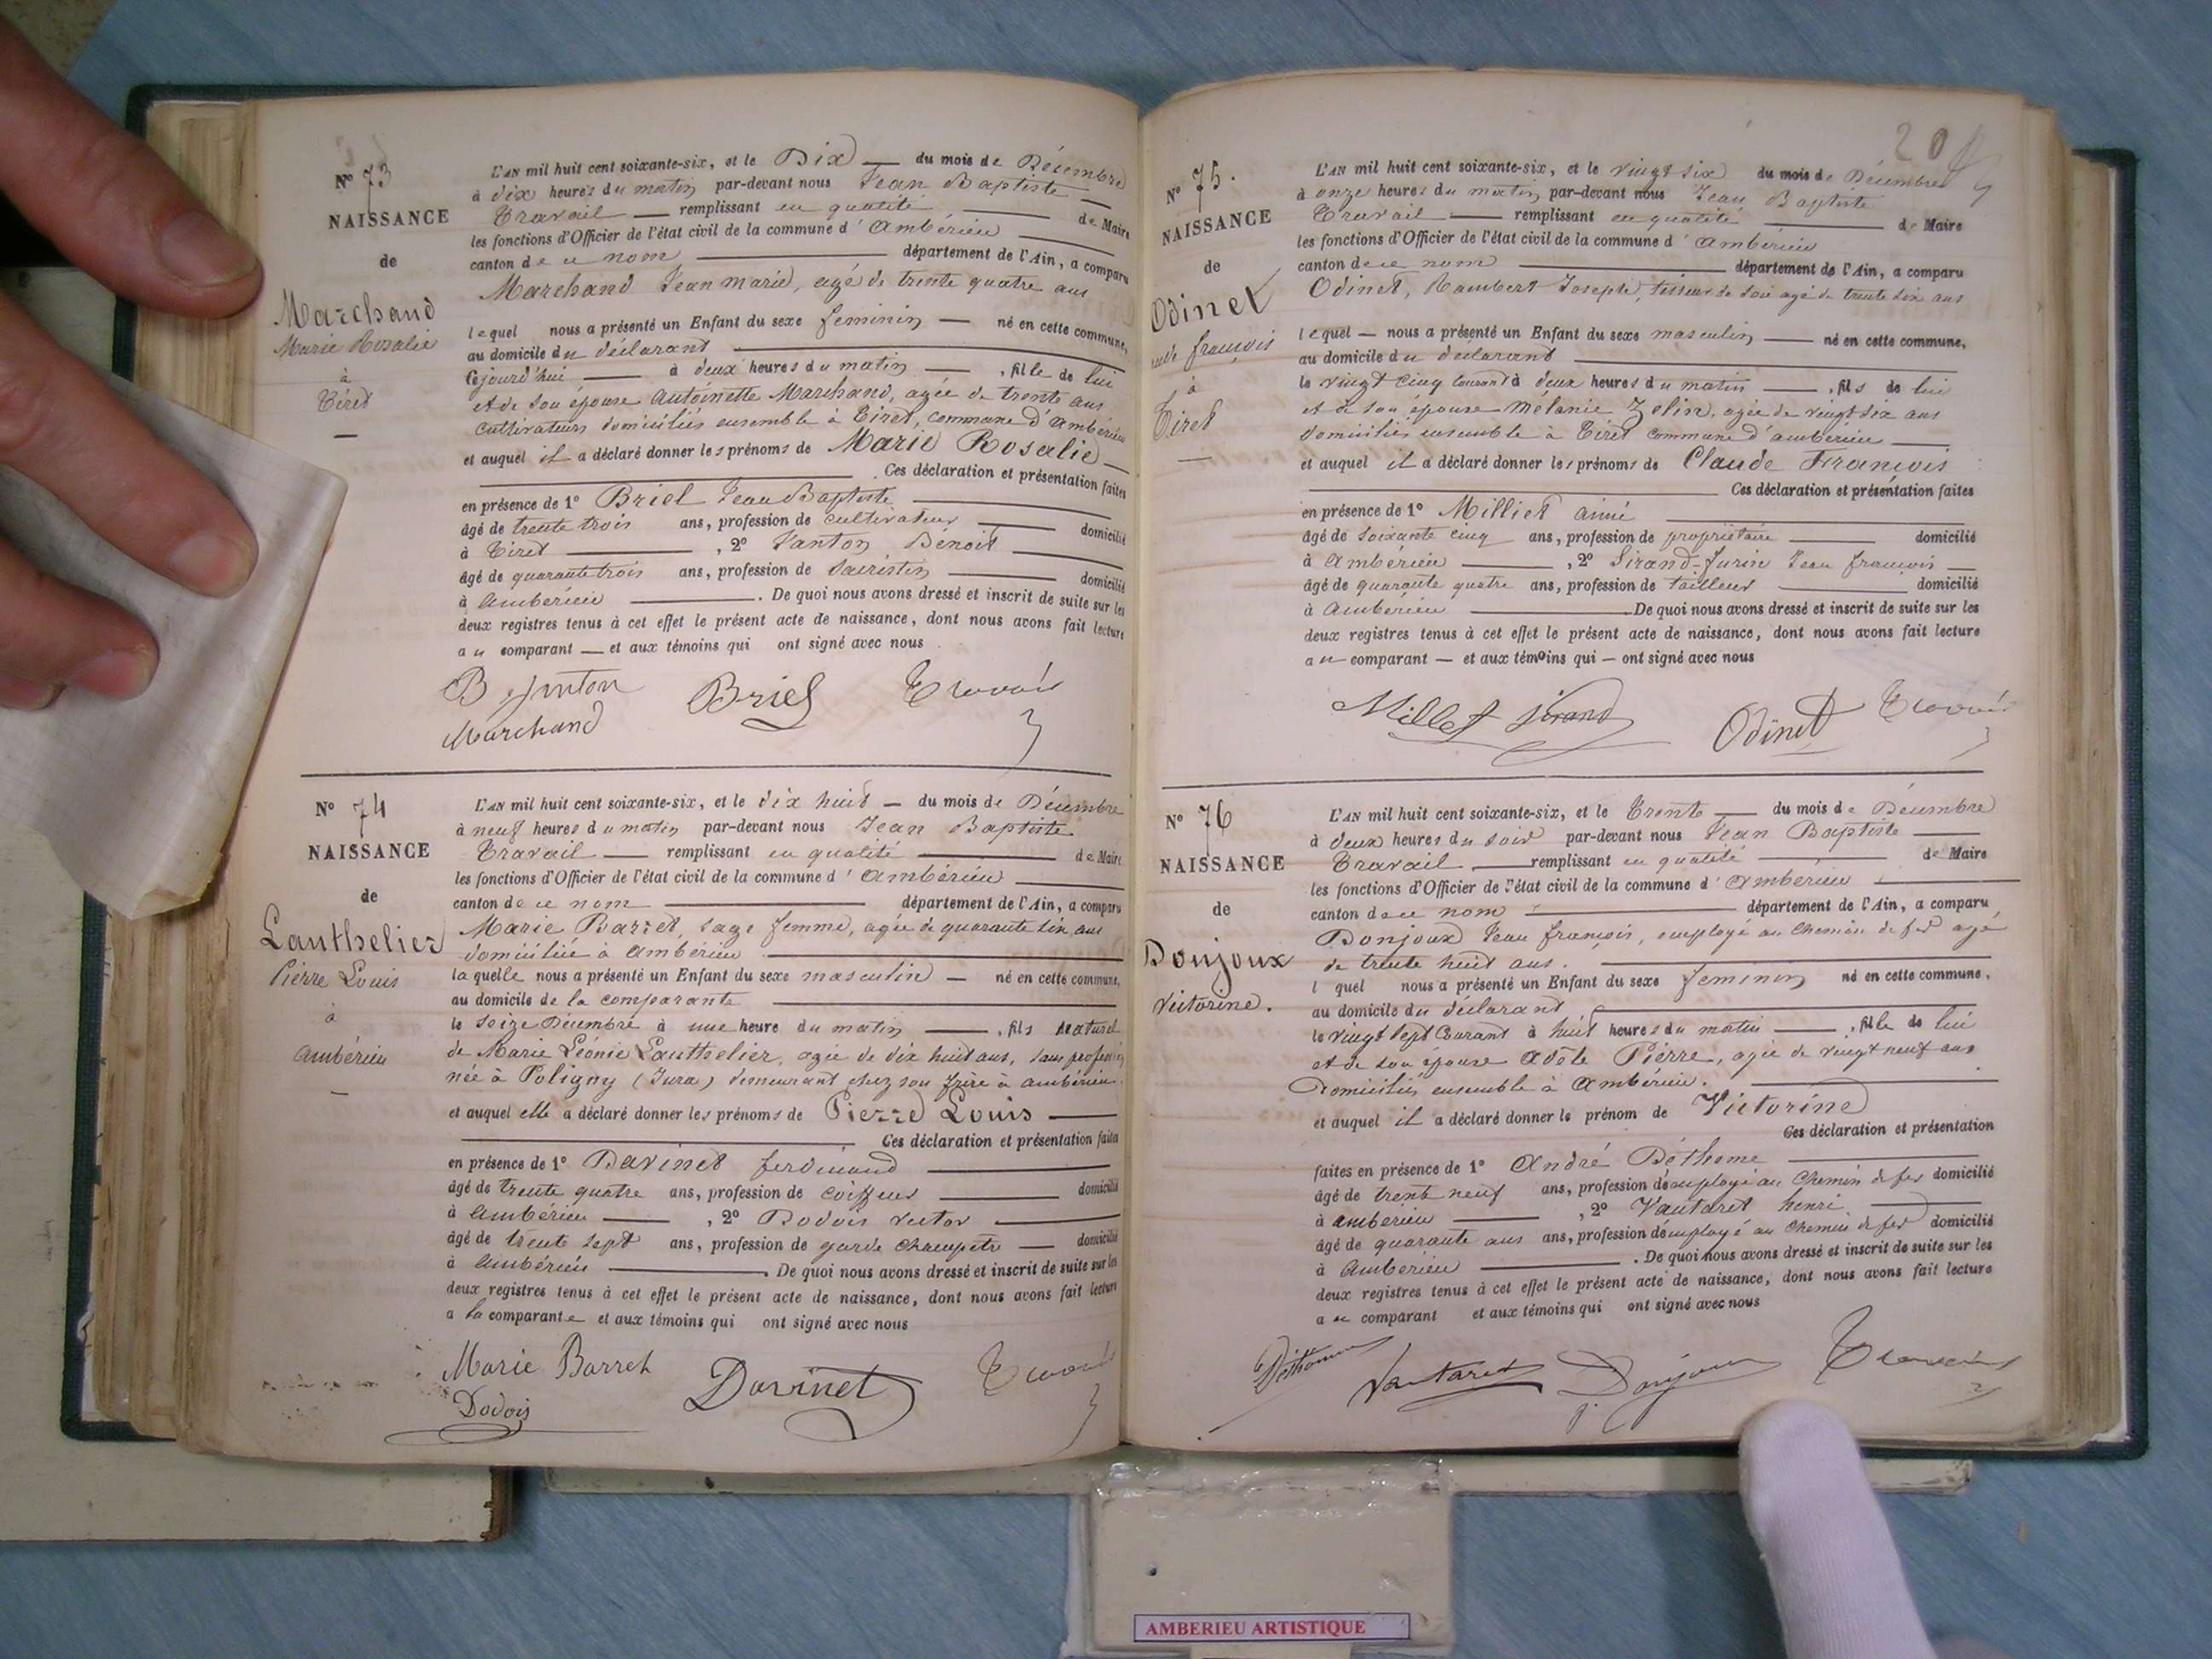 N° 73
NAISSANCE
de
Marchand
Marie Rosalie
à
Tiret
L'AN mil huit cent soixante-six, et le Dix du mois de Décembre
à dix heures du matin par-devant nous Jean Baptiste
Travail remplissant en qualité de Maire
les fonctions d'Officier de l'état civil de la commune d'Ambérieu
canton de ce nom département de l'Ain, a comparu
Marchand Jean marie, agé de trente quatre ans
lequel nous a présenté un Enfant du sexe feminin né en cette commune,
au domicile du déclarant
Cejourd'hui à deux heures du matin, fille de lui
et de son épouse Antoinette Marchand, agée de trente ans
cultivateurs domiciliés ensemble à Tiret, commune d'Ambérieu
et auquel il a déclaré donner les prénoms de Marie Rosalie
Ces déclaration et présentation faites
en présence de 1° Briel Jean Baptiste
âgé de trente trois ans, profession de cultivateur domicilié
à Tiret, 2° Janton Benoit
âgé de quarante trois ans, profession de Sacristin domicilié
à Ambérieu. De quoi nous avons dressé et inscrit de suite sur les
deux registres tenus à cet effet le présent acte de naissance, dont nous avons fait lecture
au comparant et aux témoins qui ont signé avec nous
B Janton Briel Travail
Marchand
N° 74
NAISSANCE
de
Lauthelier
Pierre Louis
à
Ambérieu
L'AN mil huit cent soixante-six, et le dix huit du mois de Décembre
à neuf heures du matin par-devant nous Jean Baptiste
Travail remplissant en qualité de Maire
les fonctions d'Officier de l'état civil de la commune d'Ambérieu
canton de ce nom département de l'Ain, a comparu
Marie Barret, sage femme, agée de quarante six ans
domiciliée à Ambérieu
laquelle nous a présenté un Enfant du sexe masculin né en cette commune,
au domicile de la comparante
le Seize Décembre à une heure du matin, fils Naturel
de Marie Léonie Lauthelier, agée de dix huit ans, sans profession
née à Poligny (Jura) demeurant chez son frère à Ambérieu
et auquel elle a déclaré donner les prénoms de Pierre Louis
Ces déclaration et présentation faites
en présence de 1° Davinet ferdinand
âgé de trente quatre ans, profession de coiffeur domicilié
à Ambérieu, 2° Dodois victor
âgé de trente sept ans, profession de garde champêtre domicilié
à Ambérieu. De quoi nous avons dressé et inscrit de suite sur les
deux registres tenus à cet effet le présent acte de naissance, dont nous avons fait lecture
a la comparante et aux témoins qui ont signé avec nous
Marie Barret Davinet Travail
Dodois
20
N° 75.
NAISSANCE
de
Odinet
François
à
Tiret
L'AN mil huit cent soixante-six, et le vingt six du mois de Décembre
à onze heures du matin par-devant nous Jean Baptiste
Travail remplissant en qualité de Maire
les fonctions d'Officier de l'état civil de la commune d'Ambérieu
canton de ce nom département de l'Ain, a comparu
Odinet, Rambert Joseph, tisseur de soie agé de trente six ans
lequel nous a présenté un Enfant du sexe masculin né en cette commune,
au domicile du déclarant
le vingt cinq Courant à deux heures du matin, fils de lui
et de son épouse Mélanie Zelin, agée de vingt six ans
domiciliés ensemble à Tiret commune d'ambérieu
et auquel il a déclaré donner les prénoms de Claude François
Ces déclaration et présentation faites
en présence de 1° Milliet aimé
âgé de soixante cinq ans, profession de propriétaire domicilié
à Ambérieu, 2° Sirand-Jurin Jean françois
âgé de quarante quatre ans, profession de tailleur domicilié
à Ambérieu. De quoi nous avons dressé et inscrit de suite sur les
deux registres tenus à cet effet le présent acte de naissance, dont nous avons fait lecture
au comparant et aux témoins qui ont signé avec nous
Milliet Sirand Odinet Travail
N° 76
NAISSANCE
de
Donjoux
Victorine.
L'AN mil huit cent soixante-six, et le Trente du mois de Décembre
à deux heures du soir par-devant nous Jean Baptiste
Travail remplissant en qualité de Maire
les fonctions d'Officier de l'état civil de la commune d'Ambérieu
canton de ce nom département de l'Ain, a comparu
Donjoux Jean françois, employé au chemin de fer agé
de trente huit ans.
l quel nous a présenté un Enfant du sexe feminin né en cette commune,
au domicile du déclarant
le vingt Sept Courant à huit heures du matin, fille de lui
et de son épouse Adèle Pierre, agée de vingt neuf ans
Domiciliés ensemble à Ambérieu.
et auquel il a déclaré donner le prénom de Victorine
Ces déclaration et présentation
faites en présence de 1° André Béthome
âgé de trente neuf ans, profession d'employé au chemin de fer domicilié
à ambérieu, 2° Vautaret henri
âgé de quarante ans ans, profession d'employé au chemin de fer domicilié
à Ambérieu. De quoi nous avons dressé et inscrit de suite sur les
deux registres tenus à cet effet le présent acte de naissance, dont nous avons fait lecture
au comparant et aux témoins qui ont signé avec nous
Vautaret Donjoux Travail
AMBERIEU ARTISTIQUE